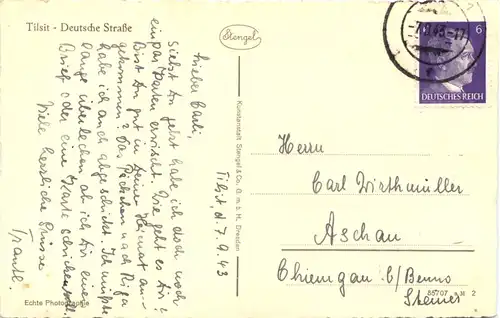 Tilsit - Deutsche Straße
Stengel
Tilsit, d. 7.9.43
Lieber Carli,
siehst Du jetzt habe ich doch noch
ein paar Karten erwischt. Wie geht es Dir?
Bist Du gut in Deiner Heimat an-
gekommen? Das Päckchen nach Riga
habe ich auch abgeschickt. Ich mußte
lange überlegen ob ich Dir einen
Brief oder eine Karte schicken soll.
Viele herzliche Grüsse
Traudl.
Echte Photographie
Kunstanstalt Stengel & Co. G. m. b. H., Dresden
6
DEUTSCHES REICH
Herrn
Carl Wirthmüller
Aschau
Chiemgau b/Benno
Steiner
85707
2